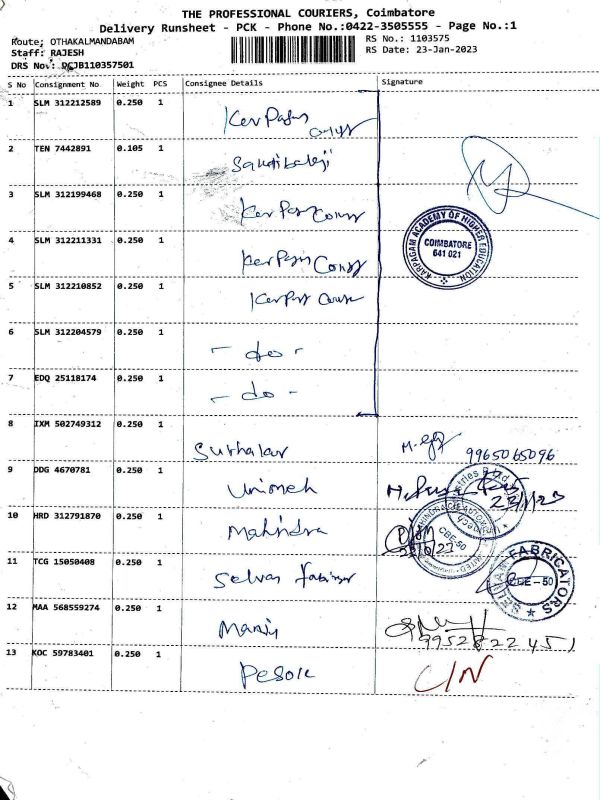 THE PROFESSIONAL COURIERS, Coimbatore
Delivery Runsheet - PCK - Phone No.:0422-3505555 - Page No.:1
Route: OTHAKALMANDABAM
RS No.: 1103575
Staff: RAJESH
RS Date: 23-Jan-2023
DRS No.: PCJB110357501
S No Consignment No Weight PCS Consignee Details Signature
1 SLM 312212589 0.250 1
2 TEN 7442891 0.105 1
3 SLM 312199468 0.250 1
KARPAGAM ACADEMY OF HIGHER EDUCATION
COIMBATORE
641 021
4 SLM 312211331 0.250 1
5 SLM 312210852 0.250 1
6 SLM 312204579 0.250 1 - do -
7 EDQ 25118174 0.250 1 - do -
8 IXM 502749312 0.250 1
9965065096
9 DDG 4670781 0.250 1 Unimech
23/1/23
10 HRD 312791870 0.250 1 Mahindra
CBE-50
11 TCG 15050408 0.250 1 Selvam
SELVAM FABRICATORS
CBE-50
12 MAA 568559274 0.250 1
9952822451
13 KOC 59783401 0.250 1